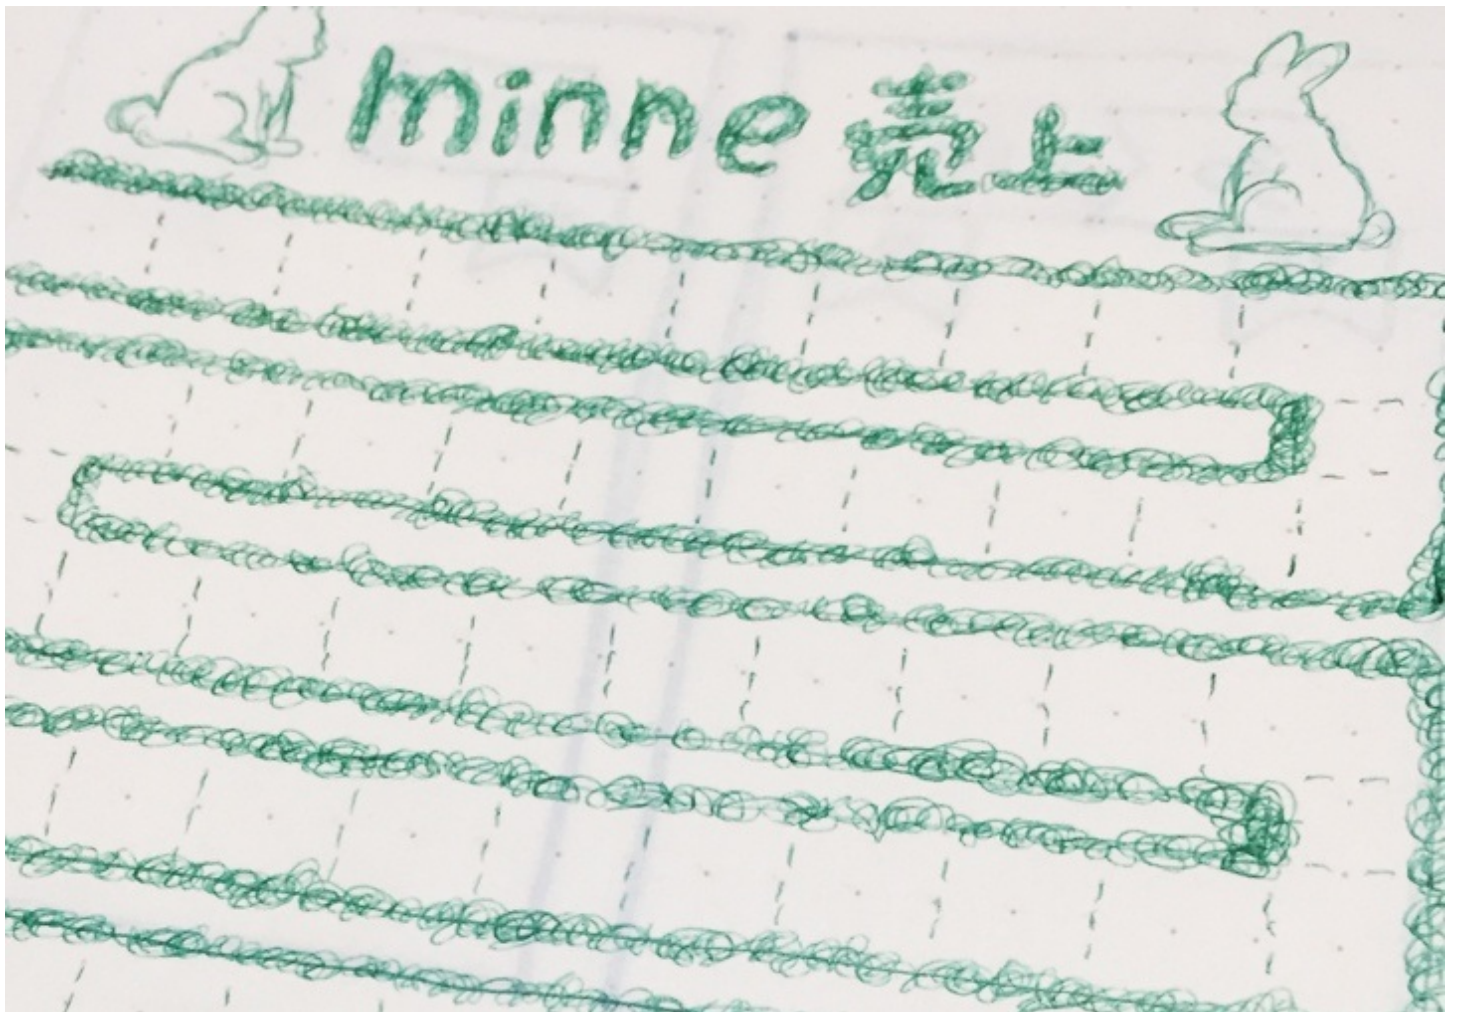 minne 売上